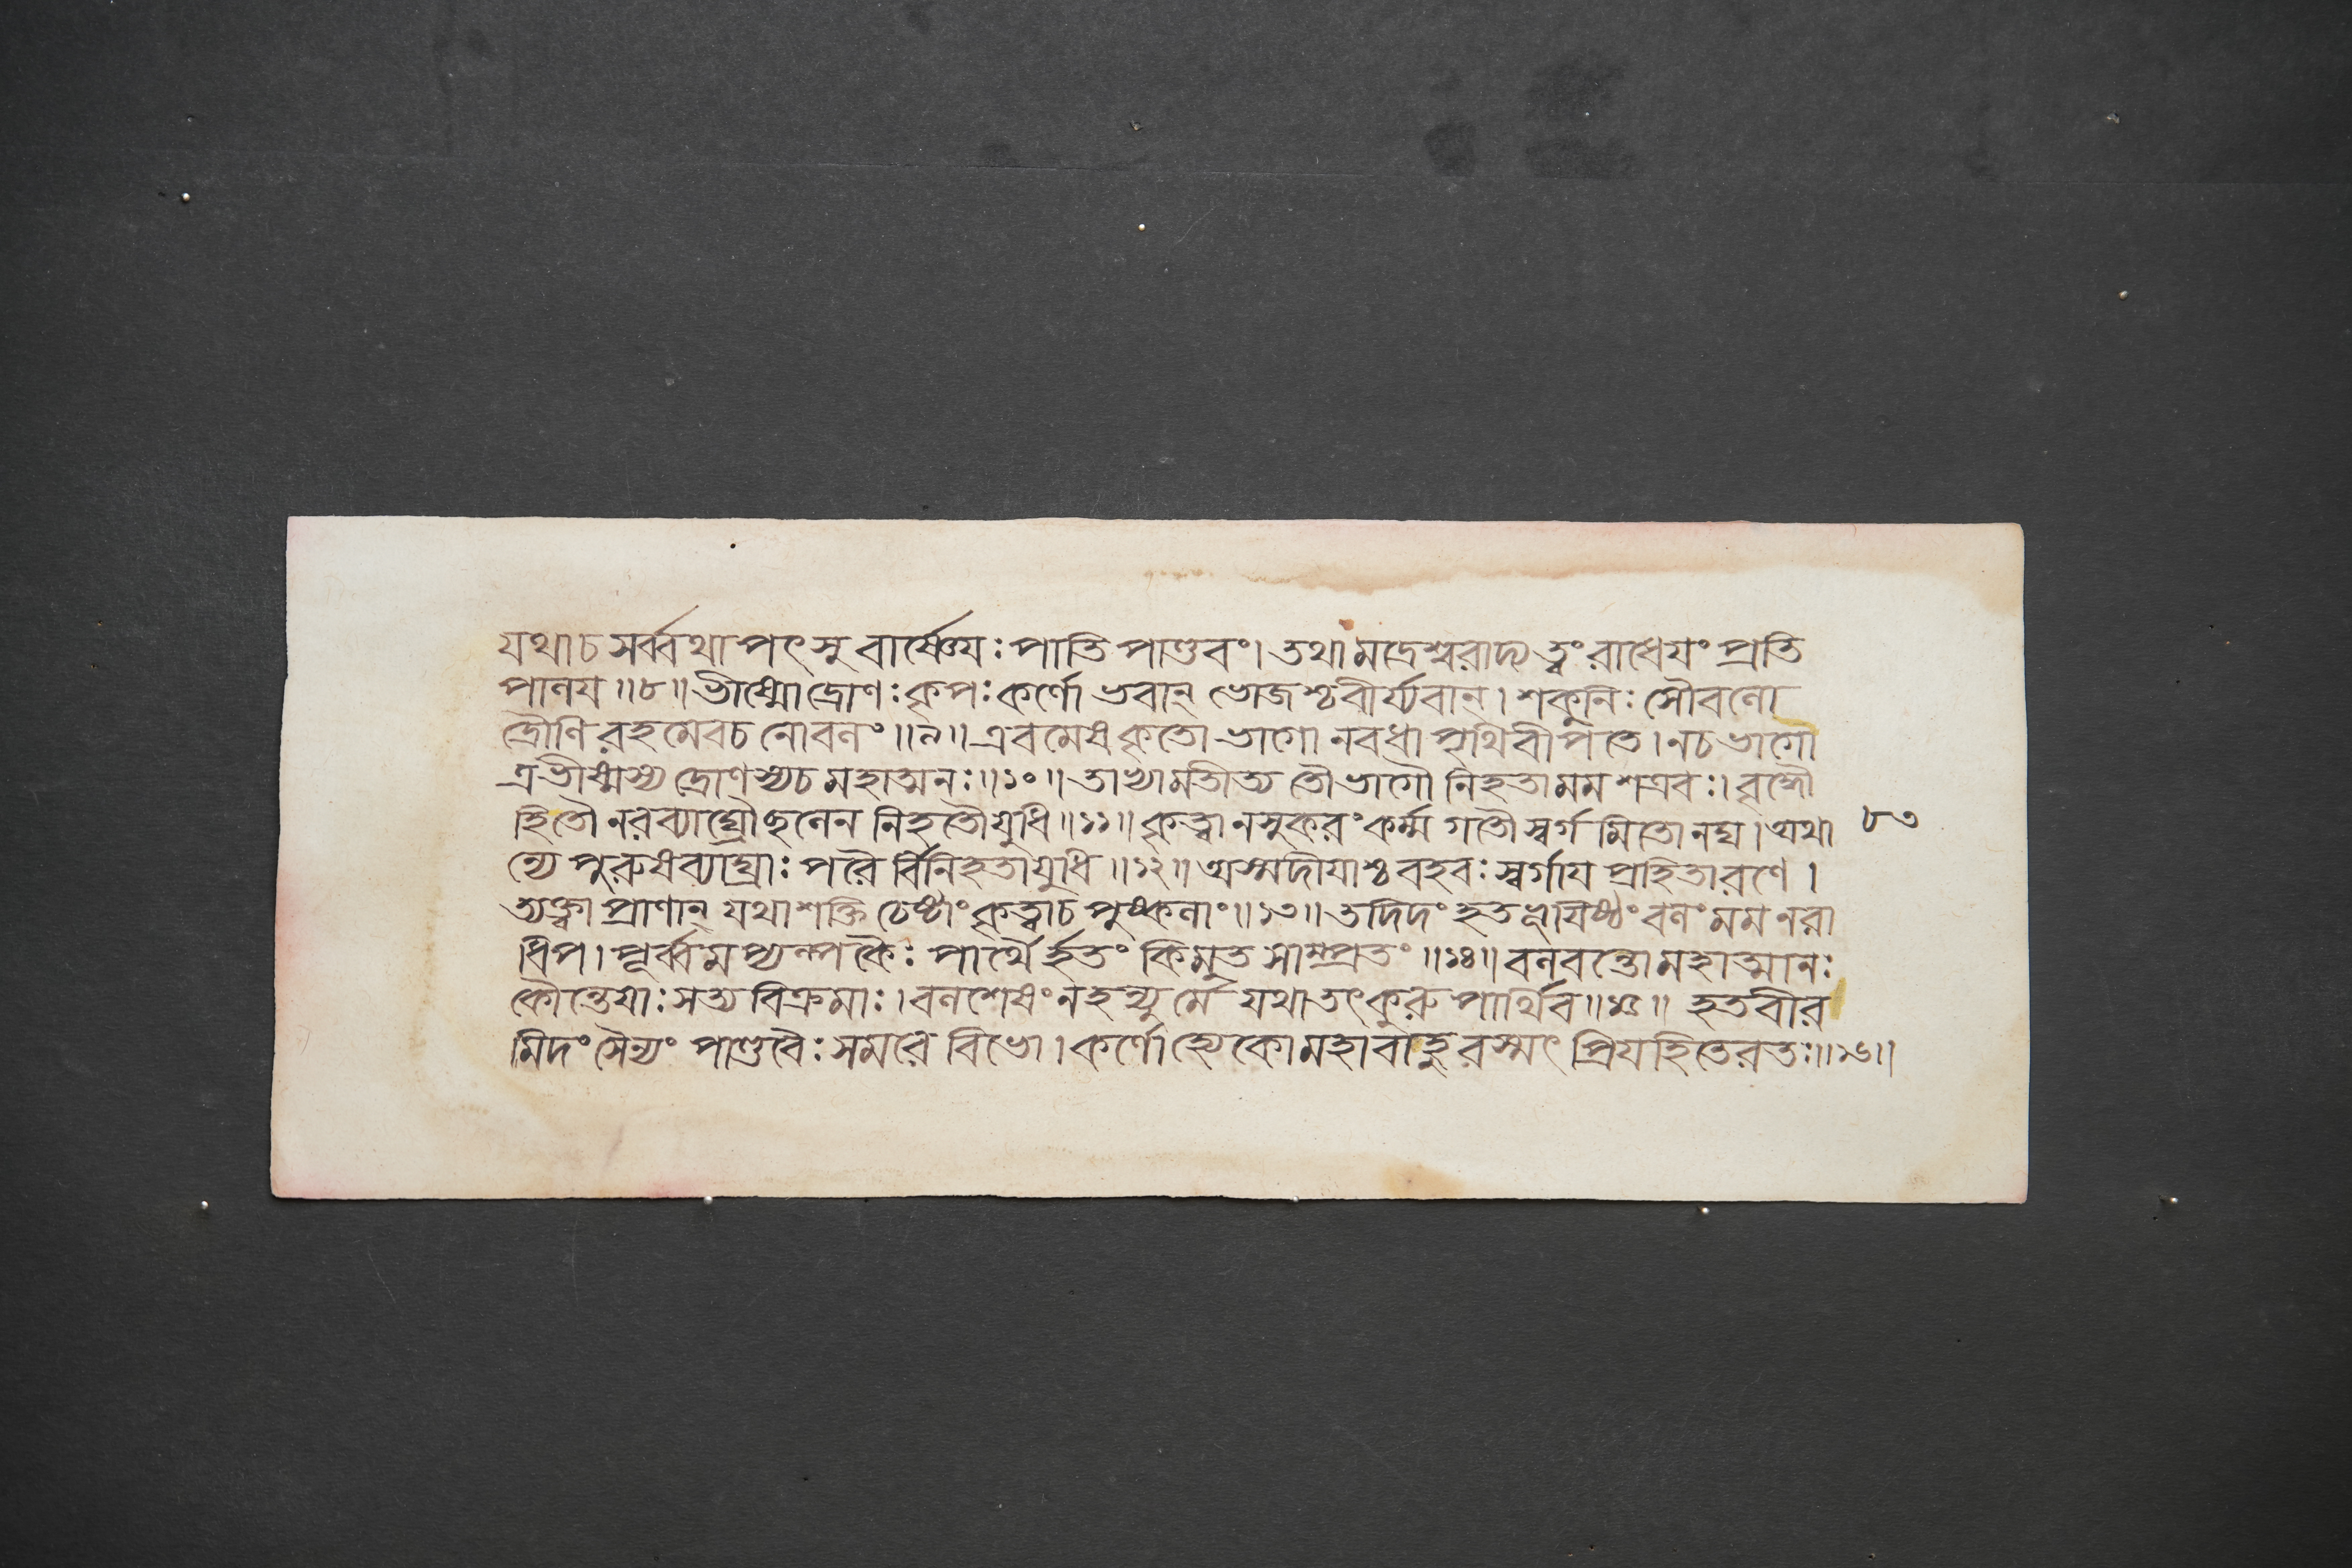 যথাচ সর্ব্বথাপৎসু বার্ষ্ণেয়ঃ পাতি পাণ্ডবং। তথা মদ্রেশ্বরাদ্য ত্বং রাধেযং প্রতি
পালয ॥৮॥ ভীষ্মো দ্রোণঃ কৃপঃ কর্ণো ভবান্ ভোজশ্চ বীর্য্যবান্। শকুনিঃ সৌবলো
দ্রৌণি রহমেবচ নোবলং ॥৯॥ এবমেষ কৃতো ভাগো নবধা পৃথিবীপতে। নচ ভাগো
ত্র ভীষ্মস্য দ্রোণস্যচ মহাত্মনঃ ॥১০॥ তাভ্যামতীত্য তৌ ভাগৌ নিহতা মম শত্রবঃ। বৃদ্ধৌ
হি তৌ নরব্যাঘ্রৌ ছলেন নিহতৌ যুধি ॥১১॥ কৃত্বা নসুকরং কর্ম্ম গতৌ স্বর্গ মিতো নঘ। তথা
ন্যে পুরুষব্যাঘ্রাঃ পরৈ র্বিনিহতা যুধি ॥১২॥ অস্মদীযাশ্চ বহবঃ স্বর্গায প্রহিতা রণে।
ত্যক্ত্বা প্রাণান্ যথাশক্তি চেষ্টাং কৃত্বাচ পুষ্কলাং ॥১৩॥ তদিদং হতভূযিষ্ঠং বলং মম নরা
ধিপ। পূর্ব্বমপ্যল্পকৈঃ পার্থৈ র্হতং কিমুত সাম্প্রতং ॥১৪॥ বলবন্তো মহাত্মানঃ
কৌন্তেযাঃ সত্যবিক্রমাঃ। বলশেষং নহন্যু র্মে যথা তৎকুরু পার্থিব ॥১৫॥ হতবীর
মিদং সৈন্যং পাণ্ডবৈঃ সমরে বিভো। কর্ণোহ্যেকো মহাবাহু রস্মৎ প্রিযহিতেরতঃ ॥১৬॥
৮৩